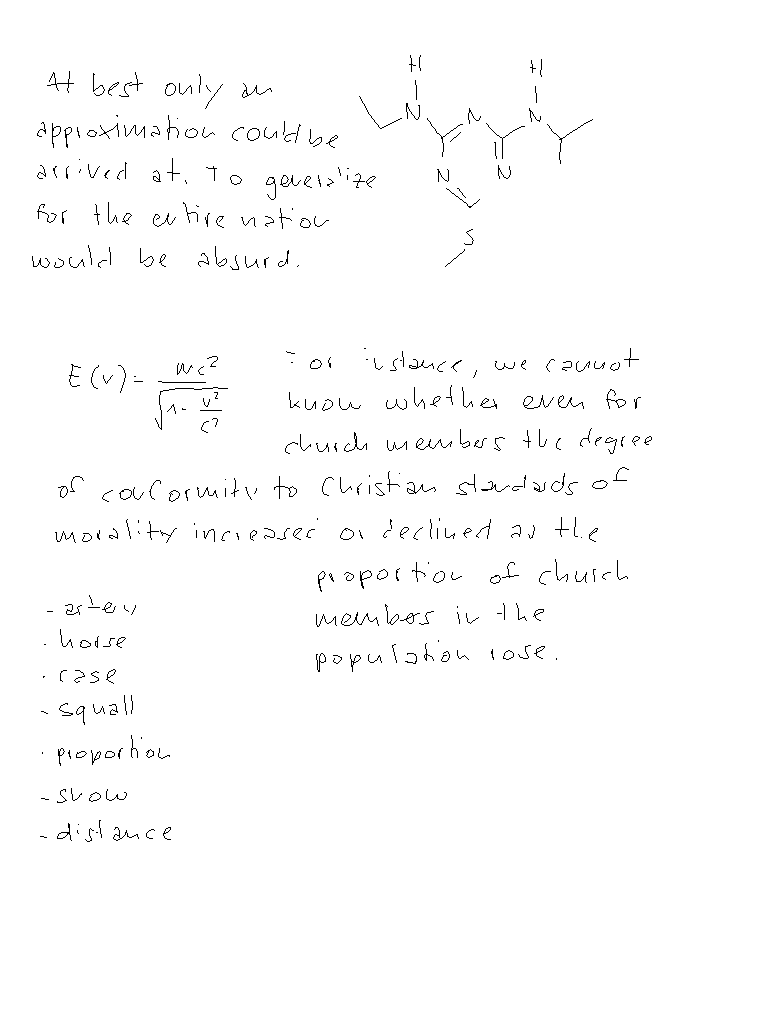 At best only an
approximation could be
arrived at. To generalize
for the entire nation
would be absurd.
H
H
N
N
N
N
N
S
E(v) = mc² / √(1 - v²/c²)
For instance, we cannot
know whether even for
church members the degree
of conformity to Christian standards of
morality increased or declined as the
proportion of church
members in the
population rose.
- horse
- case
- squall
- proportion
- snow
- distance